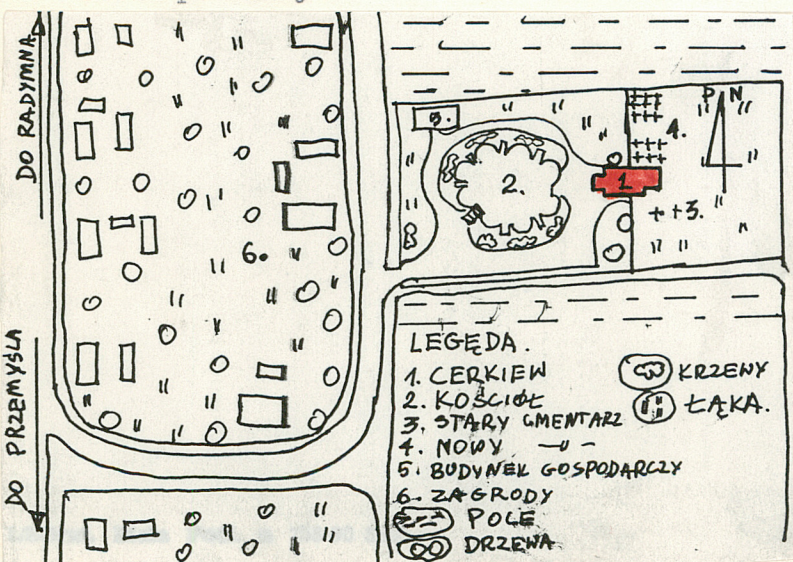 DO RADYMNA
DO PRZEMYŚLA
5.
2.
1
4.
P N
+ +3.
6.
LEGĘDA.
1. CERKIEW
2. KOŚCIÓŁ
3. STARY CMENTARZ
4. NOWY —〃—
5. BUDYNEK GOSPODARCZY
6. ZAGRODY
POLE
DRZEWA
KRZEWY
ŁĄKA.